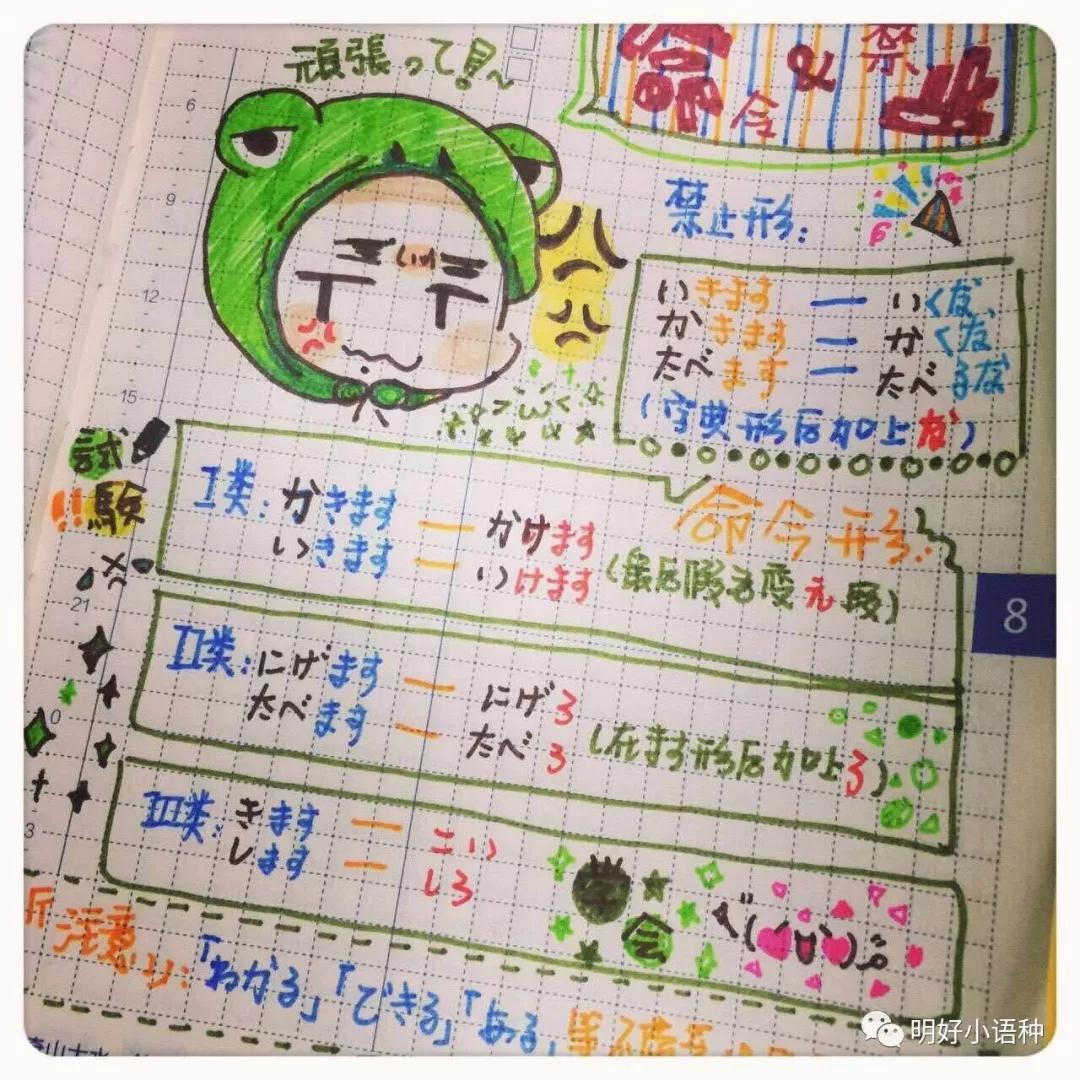 頑張って!~
命 & 禁
令 止
禁止形:
いきます — いくな
かきます — かくな
たべます — たべるな
(字典形后加上な)
6
9
12
15
試
!!験
命令形:
I类:かきます — かけます
いきます — いけます (最后假名变え段)
21
8
II类:にげます — にげろ
たべます — たべろ (在ます形后加上ろ)
0
III类:きます — こい
します — しろ
3
学
会
注意:「わかる」「できる」「ある」等
明好小语种